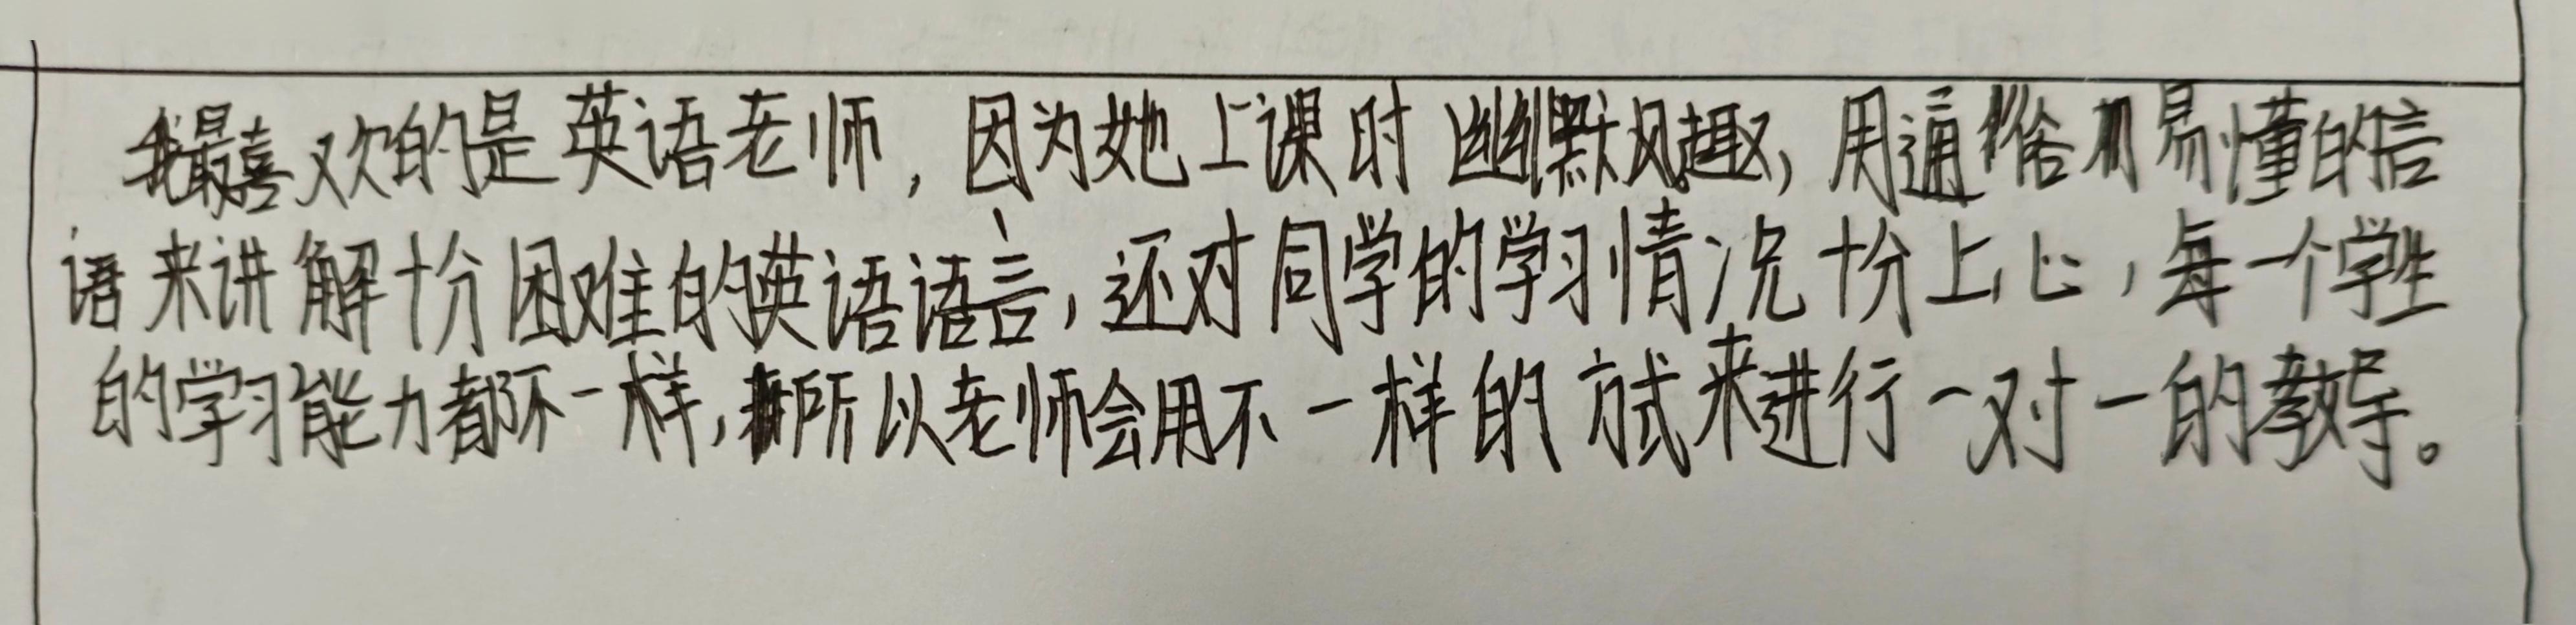 我最喜欢的是英语老师，因为她上课时幽默风趣，用通俗易懂的言
语来讲解十分困难的英语语言，还对同学的学习情况十分上心，每一个学生
的学习能力都不一样，所以老师会用不一样的方式来进行一对一的教导。